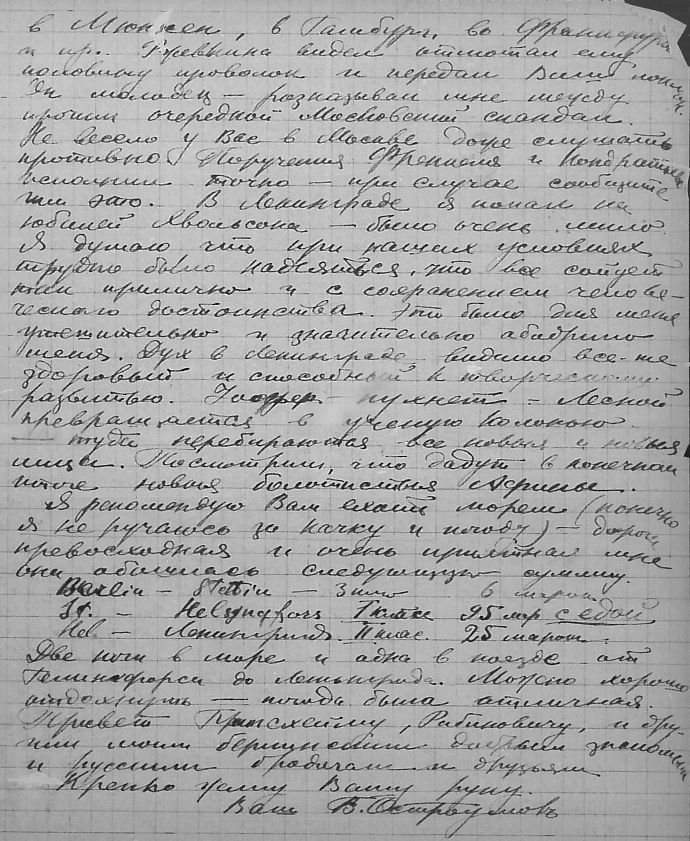 в Мюнхен, в Гамбург, во Франкфурт
и пр. Гревкина видел отмотал ему
половину проволок и передал Ваш
Он молодец — разказывал мне между
прочим очередной Московский скандал.
Не весело у Вас в Москве даже слушать
противно. Поручения Френкеля и Кондратьева
исполнил точно — при случае сообщите
им это. В Ленинграде я попал на
юбилей Хвольсона — было очень мило.
Я думаю что при наших условиях
трудно было надеяться, что все сойдет
так прилично и с сохранением челове-
ческого достоинства. Это было для меня
утешительно и значительно ободрило
меня. Дух в Ленинграде видимо все-же
здоровый и способный к творческому
развитью. пухнет — Лесной
превращается в ученую Колонию
— туда перебираются все новыя и новыя
лица. Посмотрим, что дадут в конечном
итоге новыя болотистыя Афины.
Я рекомендую Вам ехать морем (конечно
я не ручаюсь за качку и погоду) — дорога
превосходная и очень приятная мне
она обошлась следующую сумму.
Berlin — Stettin — 6 марок
St. — Helsingfors I класс 95 мар с едой
Hel — Ленинград. II клас. 25 марок.
Две ночи в море и одна в поезде от
Гельсингфорса до Ленинграда. Можно хорошо
отдохнуть — погода была отличная.
Привет Принсхейму, Рабиновичу, и дру-
гим моим берлинским добрым знакомым
и русским бродягам и друзьям
Крепко жму Вашу руку.
Ваш В. Остроумовъ